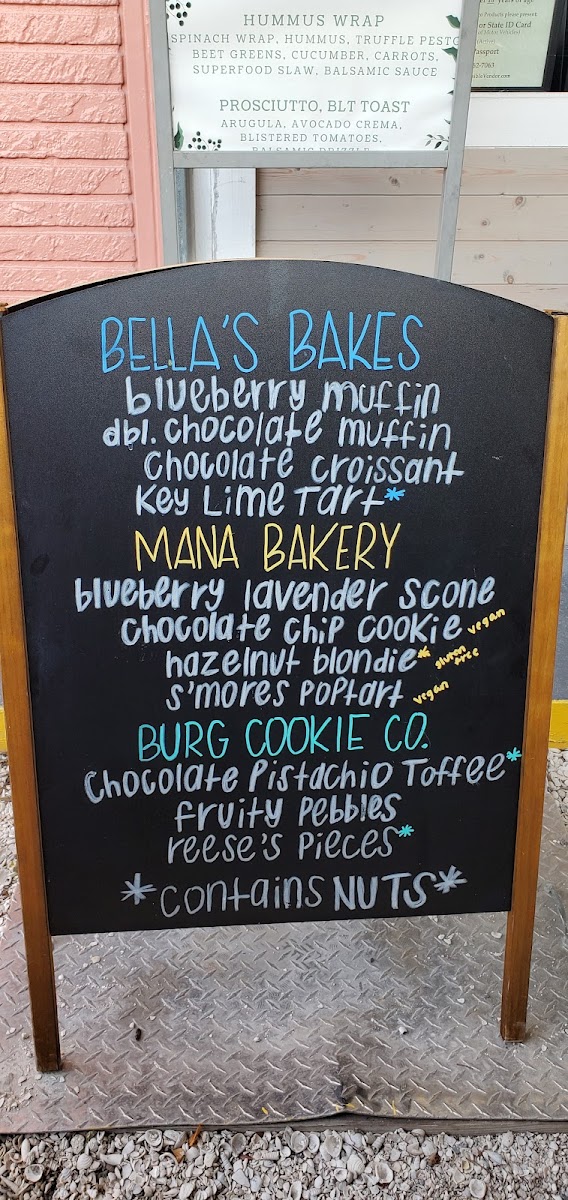 HUMMUS WRAP
SPINACH WRAP, HUMMUS, TRUFFLE PESTO
BEET GREENS, CUCUMBER, CARROTS,
SUPERFOOD SLAW, BALSAMIC SAUCE
PROSCIUTTO, BLT TOAST
ARUGULA, AVOCADO CREMA,
BLISTERED TOMATOES,
BALSAMIC DRIZZLE
or State ID Card
BELLA'S BAKES
blueberry muffin
dbl. chocolate muffin
chocolate croissant
Key Lime Tart*
MANA BAKERY
blueberry lavender scone
chocolate chip cookie vegan
hazelnut blondie* gluten free
s'mores poptart vegan
BURG COOKIE CO.
Chocolate Pistachio Toffee*
fruity pebbles
reese's pieces*
*contains NUTS*